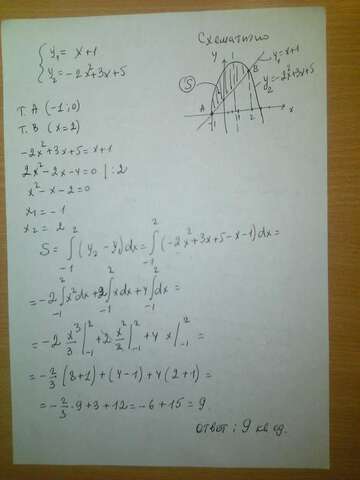 { y₁ = x+1
y₂ = -2x²+3x+5
Схематично
y
1
y₁=x+1
B
S
y₂=-2x²+3x+5
A
-1 1 2 x
т. A (-1; 0)
т. B (x=2)
-2x²+3x+5=x+1
2x²-2x-4=0 |:2
x²-x-2=0
x₁=-1
x₂=2
S = ∫₋₁² (y₂-y₁)dx = ∫₋₁² (-2x²+3x+5-x-1)dx =
= -2∫₋₁² x²dx+2∫₋₁² xdx+4∫₋₁² dx =
= -2 x³/3 |₋₁² +2 x²/2 |₋₁² +4 x|₋₁² =
= -2/3 (8+1)+(4-1)+4(2+1) =
= -2/3 · 9+3+12=-6+15=9
ответ: 9 кв ед.